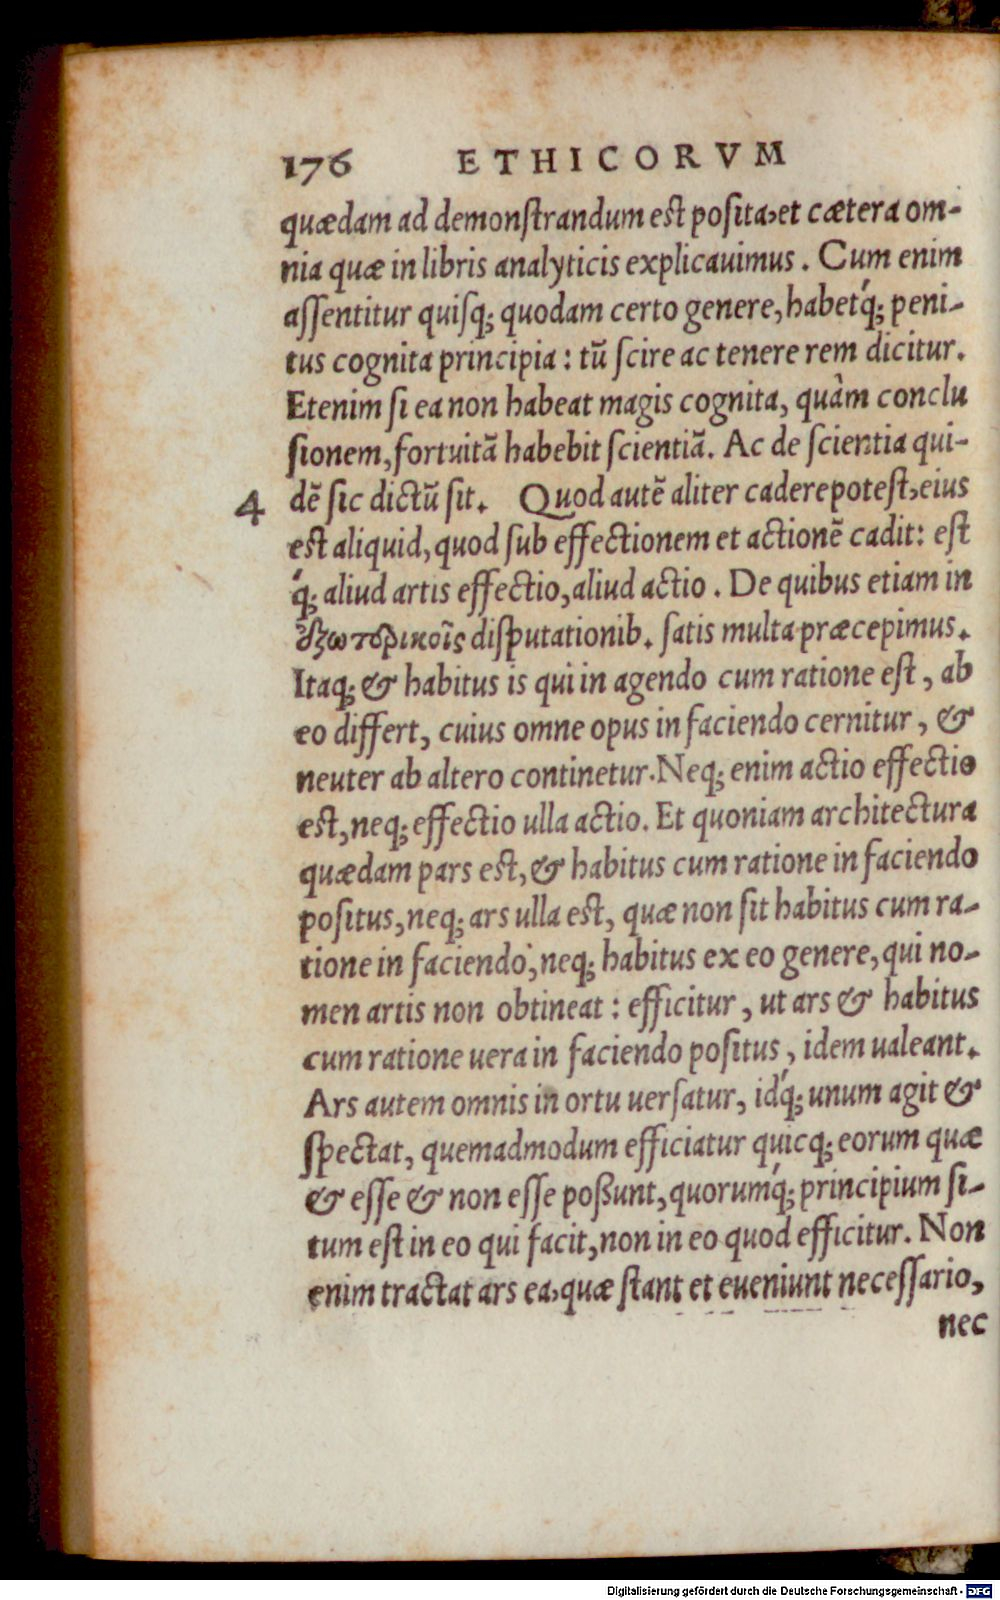 176 ETHICORVM
quædam ad demonſtrandum est poſita, et cætera om-
nia quæ in libris analyticis explicauimus. Cum enim
aſſentitur quiſq; quodam certo genere, habetq́; peni-
tus cognita principia: tũ ſcire ac tenere rem dicitur.
Etenim ſi ea non habeat magis cognita, quàm conclu
ſionem, fortuitã habebit ſcientiã. Ac de ſcientia qui-
4 dẽ ſic dictũ ſit. Quod autẽ aliter cadere poteſt, eius
est aliquid, quod ſub effectionem et actionẽ cadit: eſt
q́; aliud artis effectio, aliud actio. De quibus etiam in
ἐξωτερικοῖς diſputationib. ſatis multa præcepimus.
Itaq; & habitus is qui in agendo cum ratione eſt, ab
eo differt, cuius omne opus in faciendo cernitur, &
neuter ab altero continetur. Neq; enim actio effectio
est, neq; effectio ulla actio. Et quoniam architectura
quædam pars est, & habitus cum ratione in faciendo
poſitus, neq; ars ulla est, quæ non ſit habitus cum ra-
tione in faciendo, neq; habitus ex eo genere, qui no-
men artis non obtineat: efficitur, ut ars & habitus
cum ratione uera in faciendo poſitus, idem ualeant.
Ars autem omnis in ortu uerſatur, idq́; unum agit &
ſpectat, quemadmodum efficiatur quicq; eorum quæ
& eſſe & non eſſe poßunt, quorumq́; principium ſi-
tum eſt in eo qui facit, non in eo quod efficitur. Non
enim tractat ars ea, quæ ſtant et eueniunt neceſſario,
nec
Digitalisierung gefördert durch die Deutsche Forschungsgemeinschaft - DFG